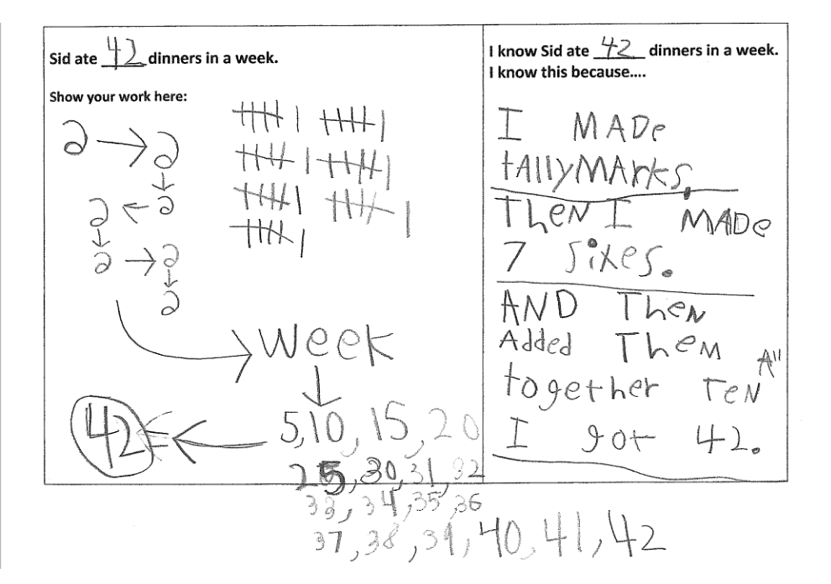 Sid ate 42 dinners in a week.
Show your work here:
week
5, 10, 15, 20
25, 30, 31, 32
33, 34, 35, 36
37, 38, 39, 40, 41, 42
42
I know Sid ate 42 dinners in a week.
I know this because....
I MADe
tAllyMArks.
THeN I MADe
7 sixes.
AND THeN
Added THeM All
together TeN
I got 42.